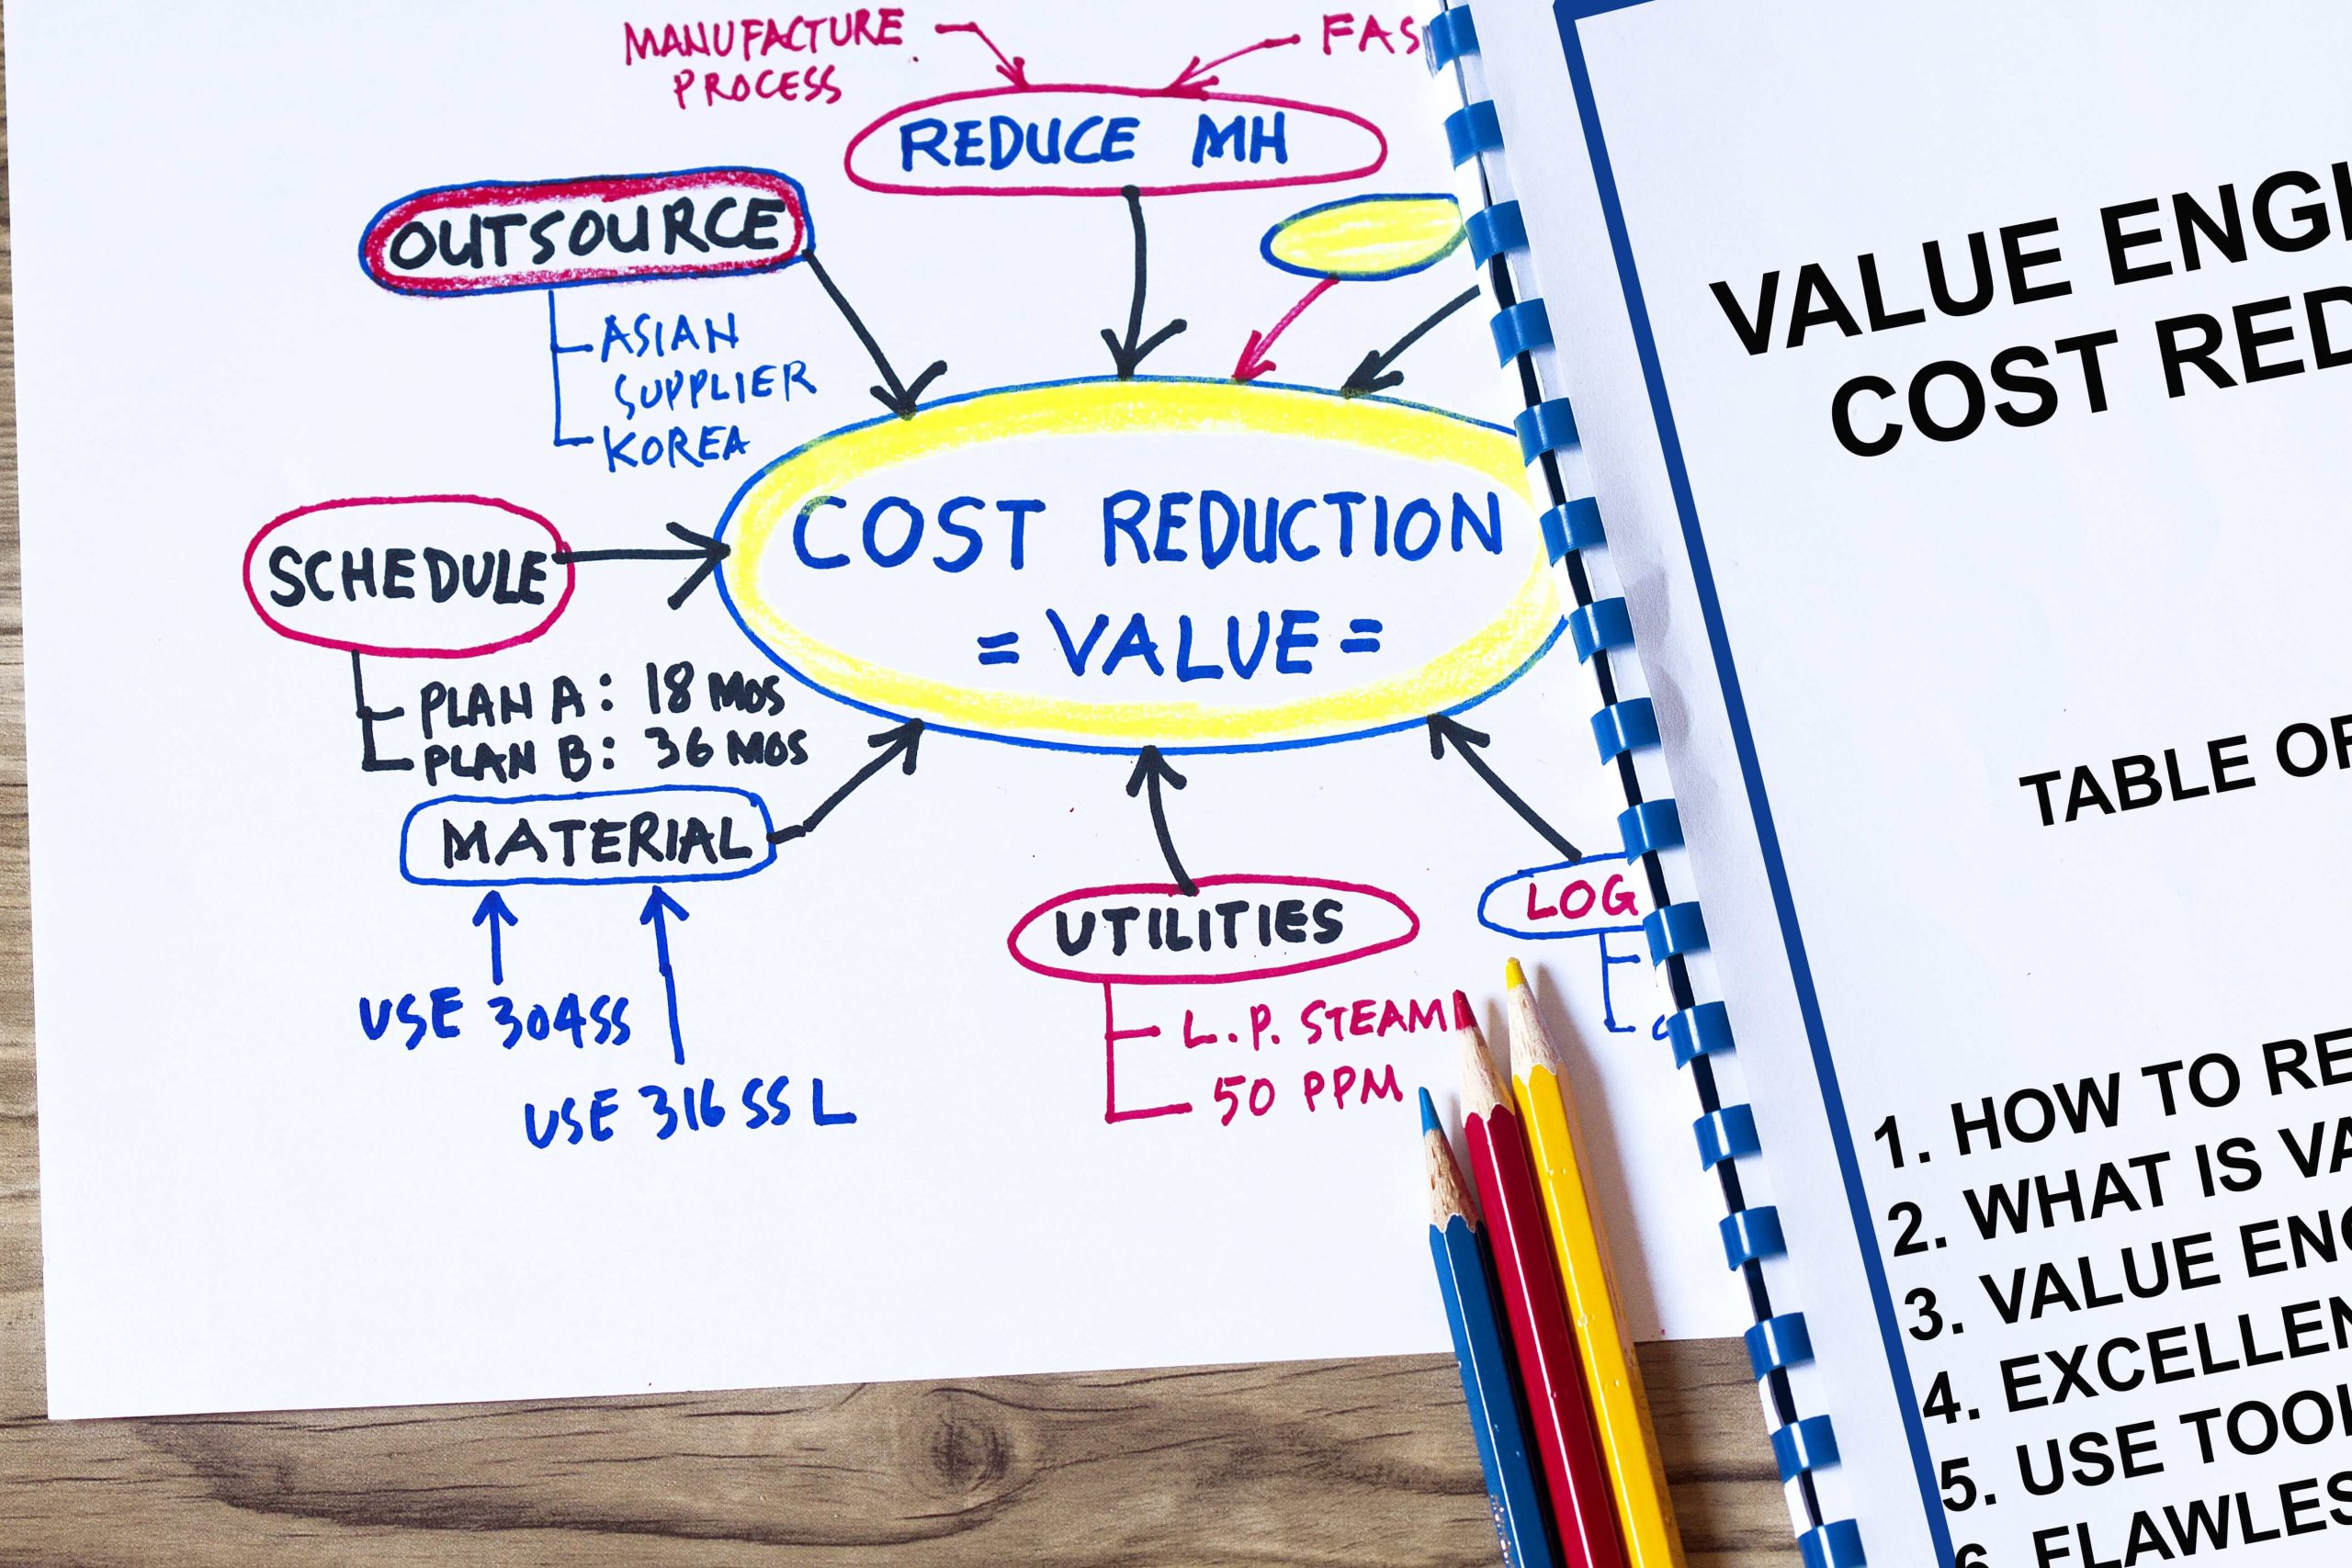 MANUFACTURE
PROCESS
FAS
REDUCE MH
OUTSOURCE
ASIAN
SUPPLIER
KOREA
COST REDUCTION
= VALUE =
SCHEDULE
PLAN A: 18 MOS
PLAN B: 36 MOS
MATERIAL
USE 304SS
USE 316 SS L
UTILITIES
L.P. STEAM
50 PPM
LOG
VALUE ENGI
COST RED
TABLE OF
1. HOW TO RE
2. WHAT IS VA
3. VALUE ENG
4. EXCELLEN
5. USE TOOL
6. FLAWLES